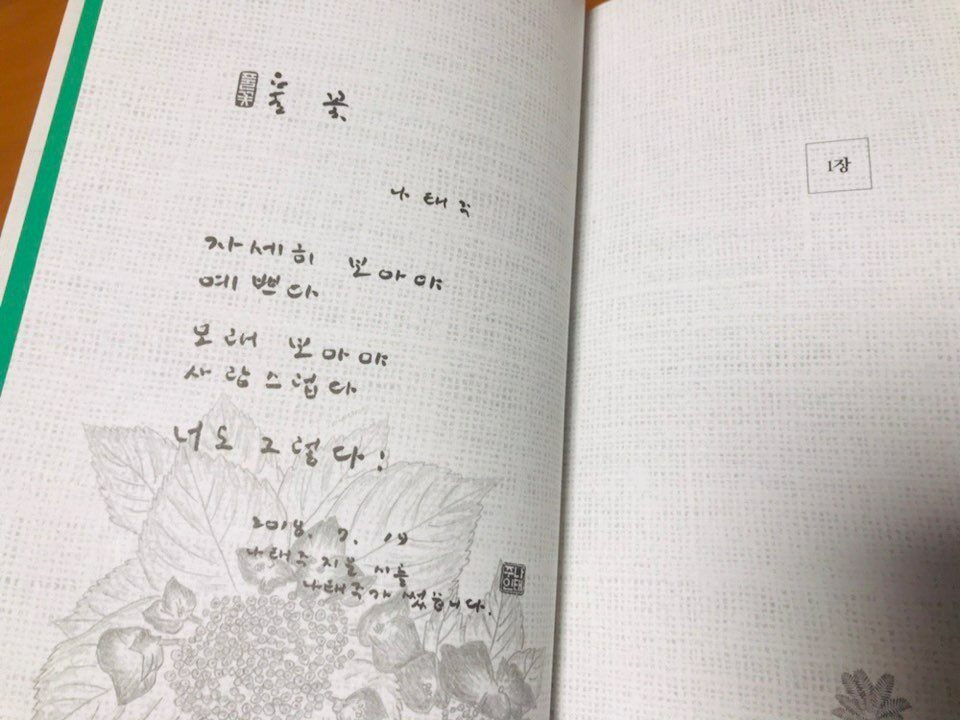 풀꽃 풀 꽃
나태주
자세히 보아야
예쁘다
오래 보아야
사랑스럽다
너도 그렇다!
2018. 7.
나태주 지은 시를
나태주가 썼습니다.
나태주인
1장